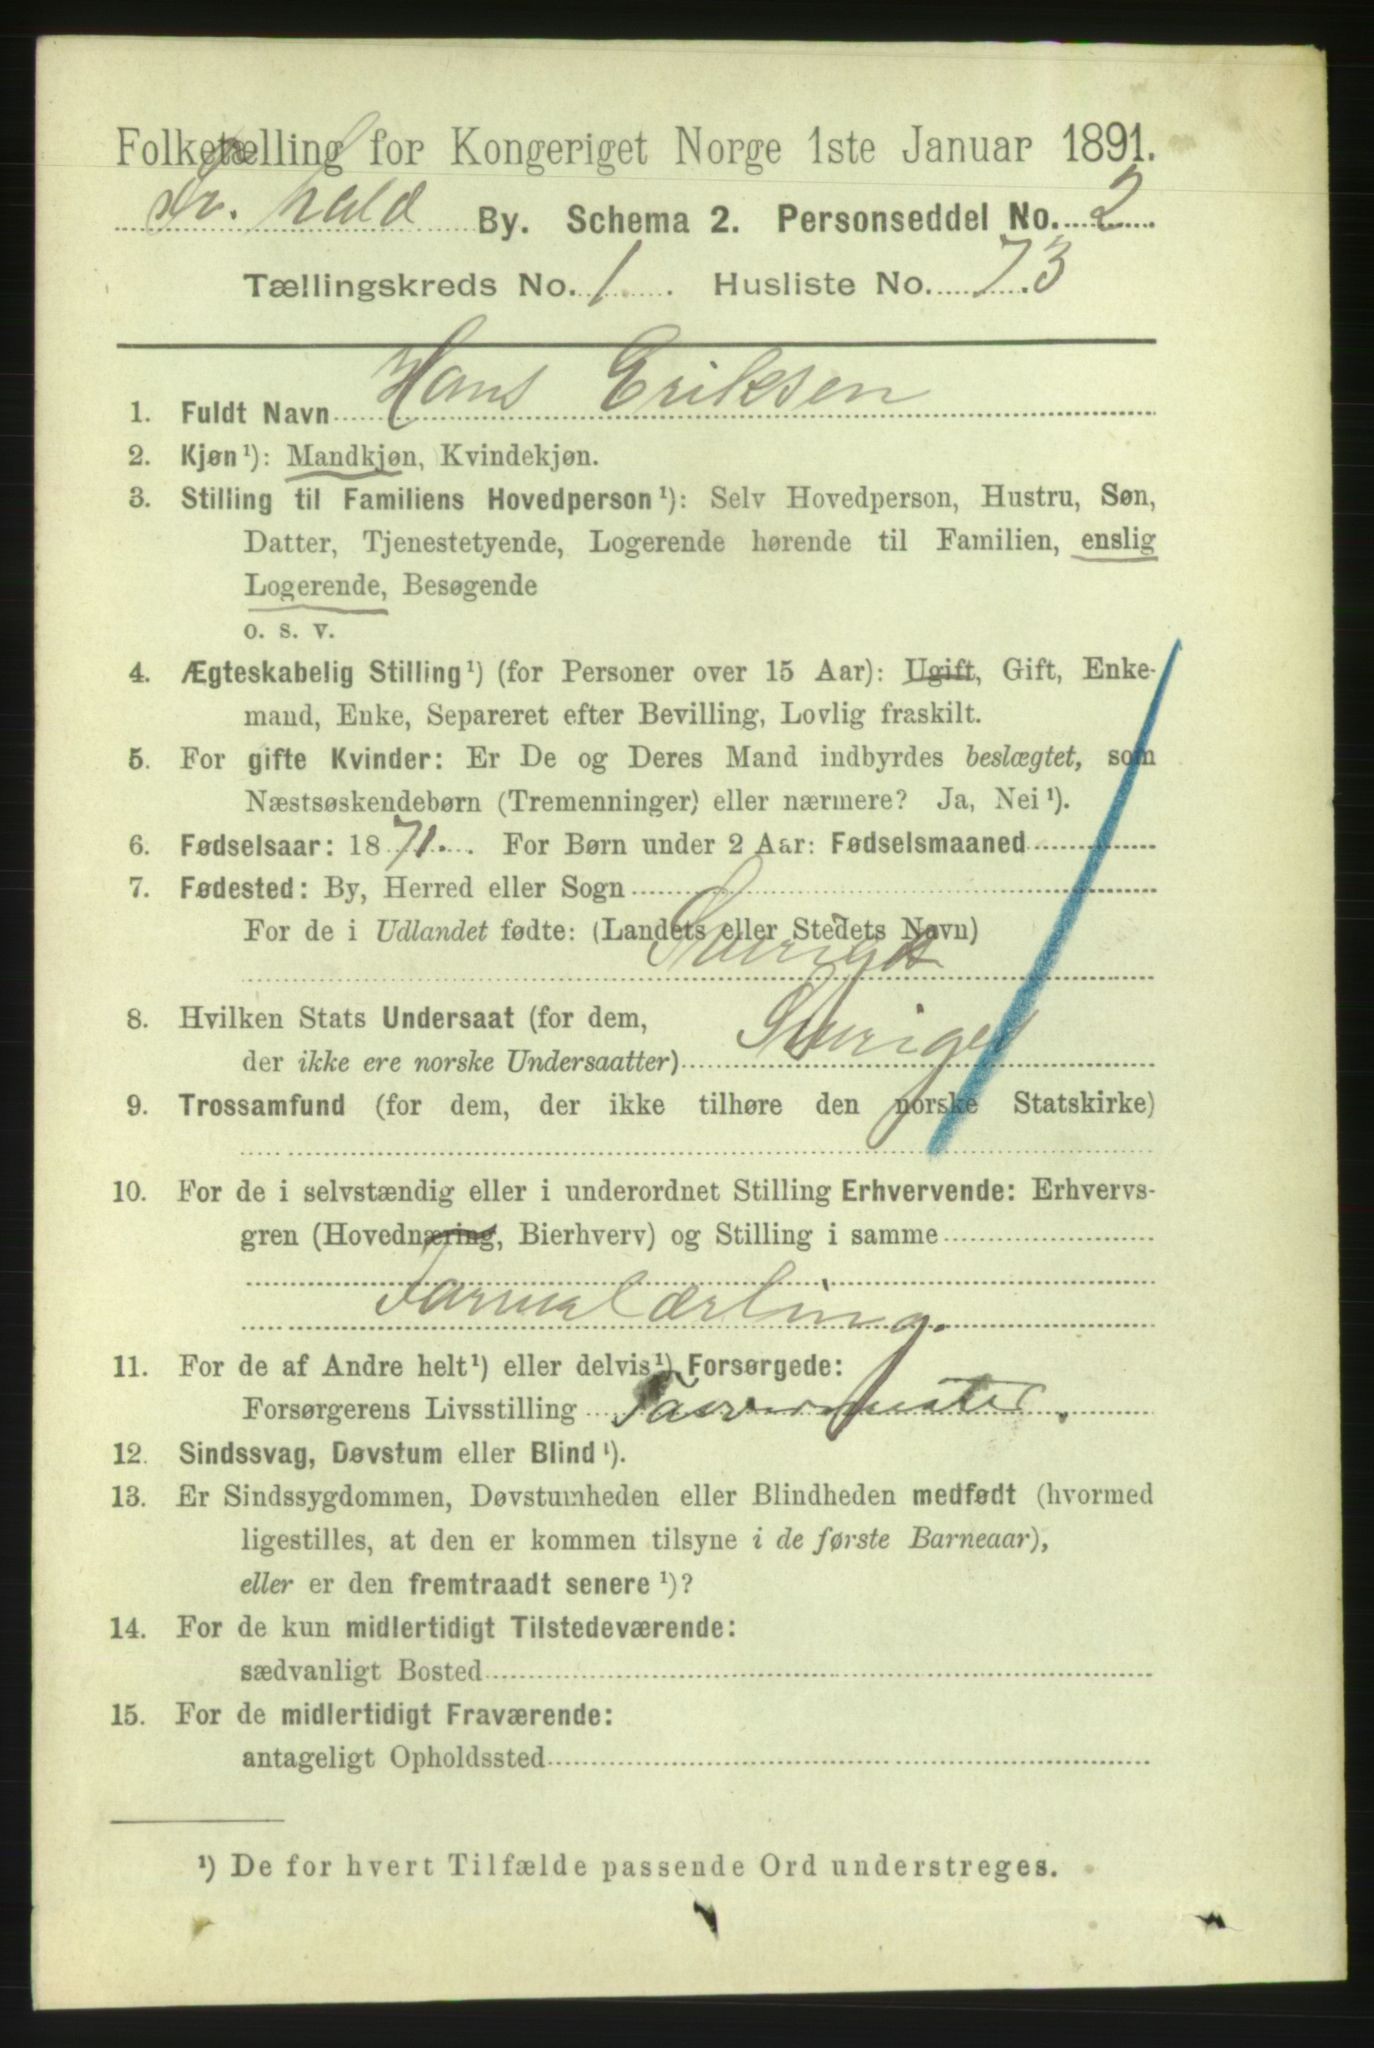 Folketælling for Kongeriget Norge 1ste Januar 1891.
Fr. hald By. Schema 2. Personseddel No. 2
Tællingskreds No. 1. Husliste No. 73
1. Fuldt Navn Hans Eriksen
2. Kjøn ¹): Mandkjøn, Kvindekjøn.
3. Stilling til Familiens Hovedperson ¹): Selv Hovedperson, Hustru, Søn,
Datter, Tjenestetyende, Logerende hørende til Familien, enslig
Logerende, Besøgende
o. s. v.
4. Ægteskabelig Stilling ¹) (for Personer over 15 Aar): Ugift, Gift, Enke-
mand, Enke, Separeret efter Bevilling, Lovlig fraskilt.
5. For gifte Kvinder: Er De og Deres Mand indbyrdes beslægtet, som
Næstsøskendebørn (Tremenninger) eller nærmere? Ja, Nei ¹).
6. Fødselsaar: 1871. For Børn under 2 Aar: Fødselsmaaned
7. Fødested: By, Herred eller Sogn
For de i Udlandet fødte: (Landets eller Stedets Navn)
Sverige
8. Hvilken Stats Undersaat (for dem,
der ikke ere norske Undersaatter) Sveriges
9. Trossamfund (for dem, der ikke tilhøre den norske Statskirke)
10. For de i selvstændig eller i underordnet Stilling Erhvervende: Erhvervs-
gren (Hovednæring, Bierhverv) og Stilling i samme
11. For de af Andre helt ¹) eller delvis ¹) Forsørgede:
Forsørgerens Livsstilling
12. Sindssvag, Døvstum eller Blind ¹).
13. Er Sindssygdommen, Døvstumheden eller Blindheden medfødt (hvormed
ligestilles, at den er kommen tilsyne i de første Barneaar),
eller er den fremtraadt senere ¹)?
14. For de kun midlertidigt Tilstedeværende:
sædvanligt Bosted
15. For de midlertidigt Fraværende:
antageligt Opholdssted
¹) De for hvert Tilfælde passende Ord understreges.